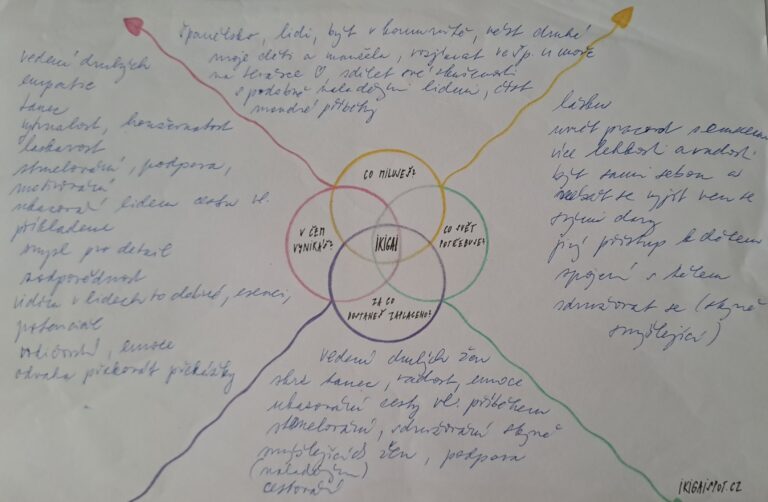 Španělsko, lidi, být v komunitě, vést druhé
moje děti a manžela, vozjímat ve Šp. u moře
na terásce ♡, sdílet své zkušenosti
s podobně naladěnými lidmi, číst
moudré příběhy
vedení druhých
empatie
tanec
vytrvalost, houževnatost
laskavost
stmelování, podpora,
motivování
ukazování lidem cestu vl.
příkladem
smysl pro detail
zodpovědnost
vidím v lidech to dobré, esenci,
potenciál
rodičovství, emoce
odvaha překonat překážky
CO MILUJEŠ?
V ČEM
VYNIKÁŠ?
IKIGAI
CO SVĚT
POTŘEBUJE?
ZA CO
DOSTANEŠ ZAPLACENO?
lásku
umět pracovat s emocemi
více lehkosti a radosti
být sami sebou a
nebát se vyjít ven se
svými dary
jiný přístup k dětem
spojení s tělem
sdružovat se (stejně
smýšlející)
vedení druhých žen
skrz tanec, radost, emoce
ukazování cesty vl. příběhem
stmelování, sdružování stejně
smýšlejících žen, podpora
(naladěným)
cestování
IKIGAISPOT.CZ